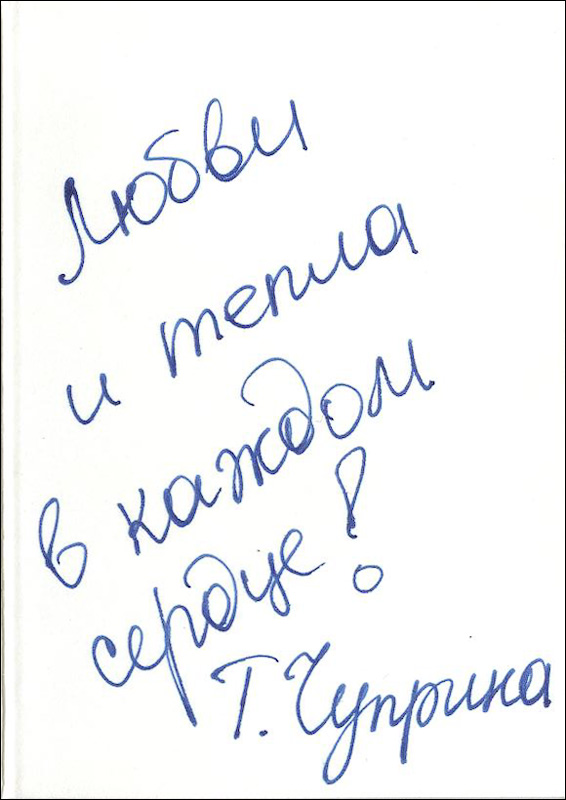 Любви
и тепла
в каждом
сердце!
Т. Чуприна